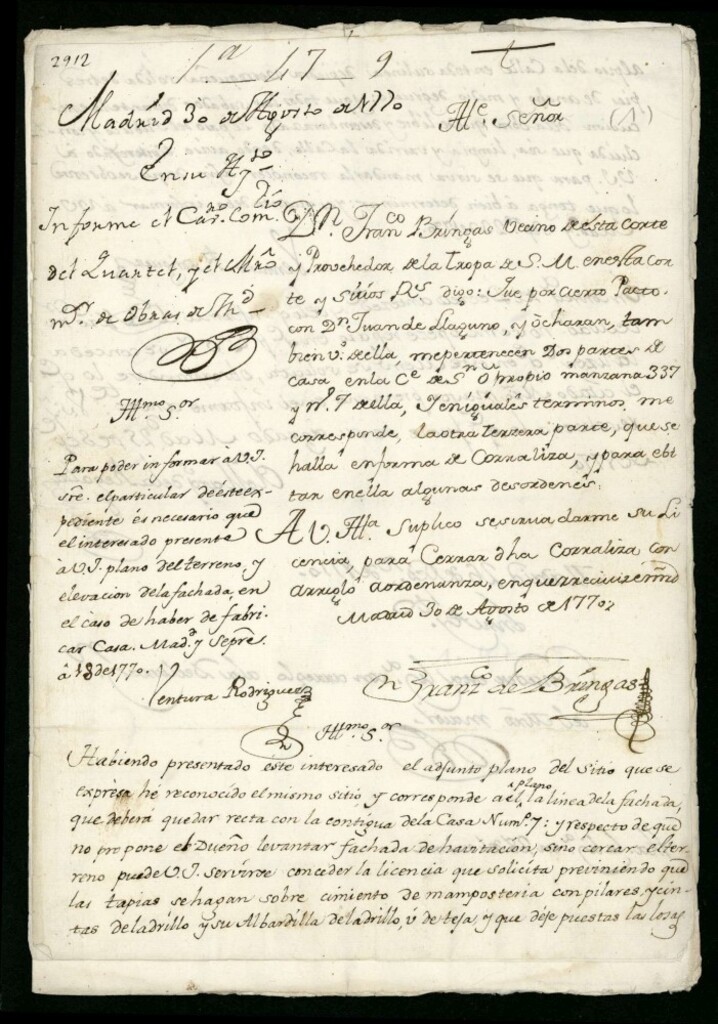 2912
1ª 47 9
(1)
Madrid 30 de Agosto de 1770
En su Ayto
Informe el Cavro Comrio
del Quartel, y el Mro
mor de Obras de Md
Illmo Sor
Para poder informar á V.I.
sre. el particular de este ex-
pediente és necesario que
el interesado presente
à V.I. plano del terreno, y
elevacion dela fachada, en
el caso de haber de fabri-
car Casa. Madd y Sepre.
â 18 de 1770.
Ventura Rodriguez
Señor
Dn. Franco Bringas Vecino de esta Corte
y Provehedor de la Tropa de S. M. en esta Cor
te y Sitios Rs digo: Que por cierto Pacto
con Dn Juan de Llaguno, y òcharan, tam
bien vo. de ella, me pertenecen Dos partes de
casa en la Ce de Sn Opropio manzana 337
y no. 7 de ella, y en iguales terminos, me
corresponde, la otra terzera parte, que se
halla en forma de Corraliza, y para ebi
tar en ella algunas desordenes:
A V. Illa Suplico se sirva darme su Li
cencia, para Cerrar dha Corraliza con
arreglo a ordenanza, en que reciviré mrd
Madrid 30 de Agosto de 1770
Franco de Bringas
Illmo Sor
Habiendo presentado este interesado el adjunto plano del sitio que se
expresa hé reconocido el mismo sitio, y corresponde a el plano la linea de la fachada,
que deberá quedar recta con la contigua de la Casa Numo 7: y respecto de que
no propone el Dueño levantar fachada de havitación, sino cercar el ter-
reno puede V.I. servirse conceder la licencia que solicita previniendo que
las tapias se hagan sobre cimiento de mamposteria con pilares, y cin-
tas de ladrillo y su Albardilla de ladrillo, ú de teja, y que déje puestas las losas